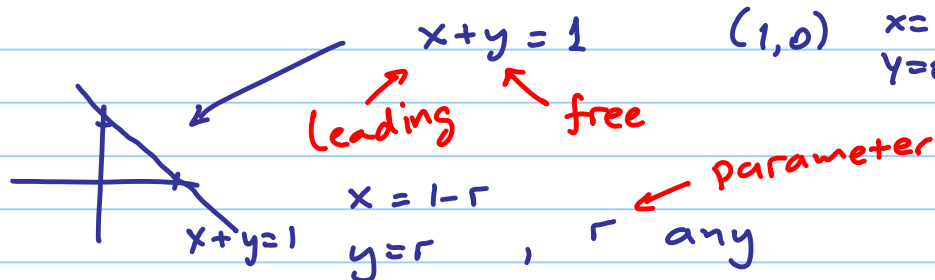 x+y = 1 (1,0) x=
y=
leading free
parameter
x = 1-r
y=r , r any
x+y=1